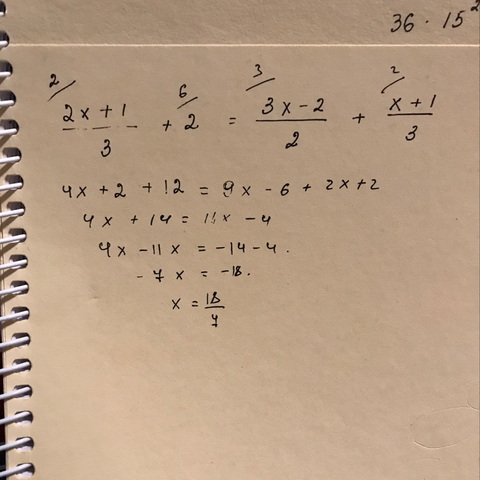 36 · 15²
2 6 3 2
(2x+1)/3 + 2 = (3x-2)/2 + (x+1)/3
4x+2 +12 = 9x - 6 + 2x+2
4x +14 = 11x - 4
4x -11x = -14-4.
-7x = -18.
x = 18/7